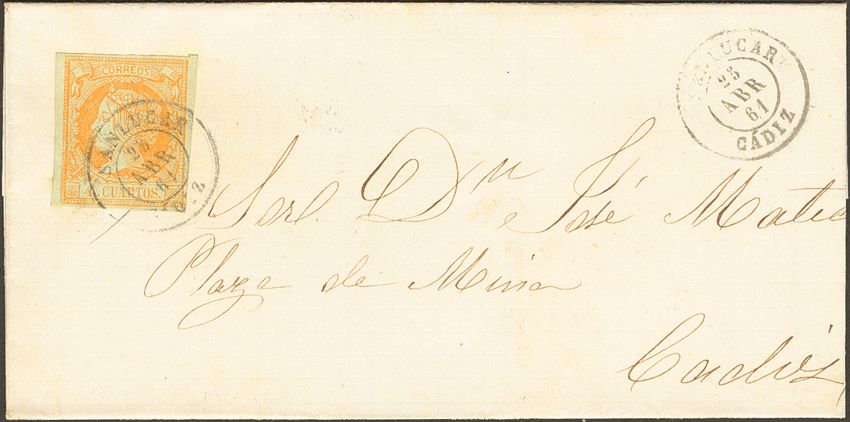 CORREOS
CUARTOS
23
ABR
61
LUCAR
23
ABR
61
CÁDIZ
Sor. Dn José Mateo
Plaza de Mina
Cadiz